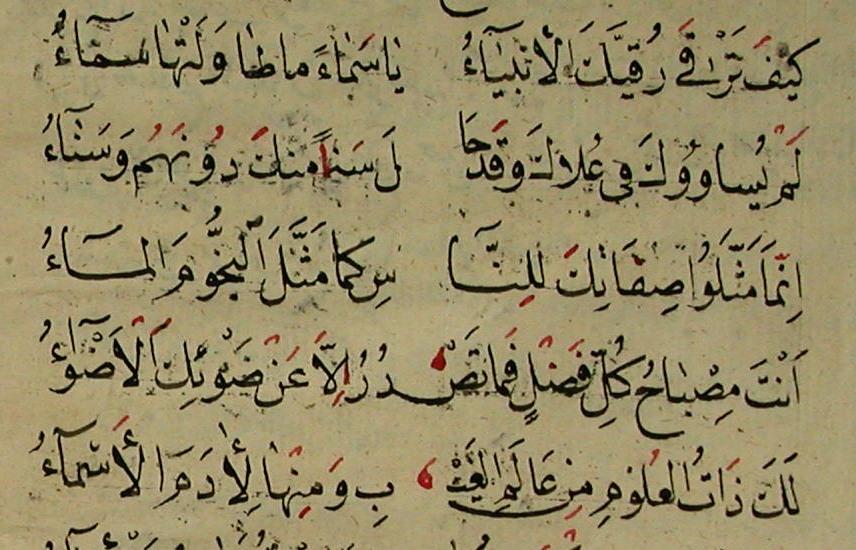 كَيْفَ تَرْقٰى رُقِيَّكَ الْأَنْبِيَاءُ يَا سَمَاءً مَا طَاوَلَتْهَا سَمَاءُ
لَمْ يُسَاوُوكَ فِي عُلَاكَ وَقَدْ حَا لَ سَنًا مِنْكَ دُونَهُمْ وَسَنَاءُ
إِنَّمَا مَثَّلُوا صِفَاتِكَ لِلنَّا سِ كَمَا مَثَّلَ النُّجُومَ الْمَاءُ
أَنْتَ مِصْبَاحُ كُلِّ فَضْلٍ فَمَا تَصْدُرُ إِلَّا عَنْ ضَوْئِكَ الْأَضْوَاءُ
لَكَ ذَاتُ الْعُلُومِ مِنْ عَالَمِ الْغَيْ بِ وَمِنْهَا لِأٰدَمَ الْأَسْمَاءُ